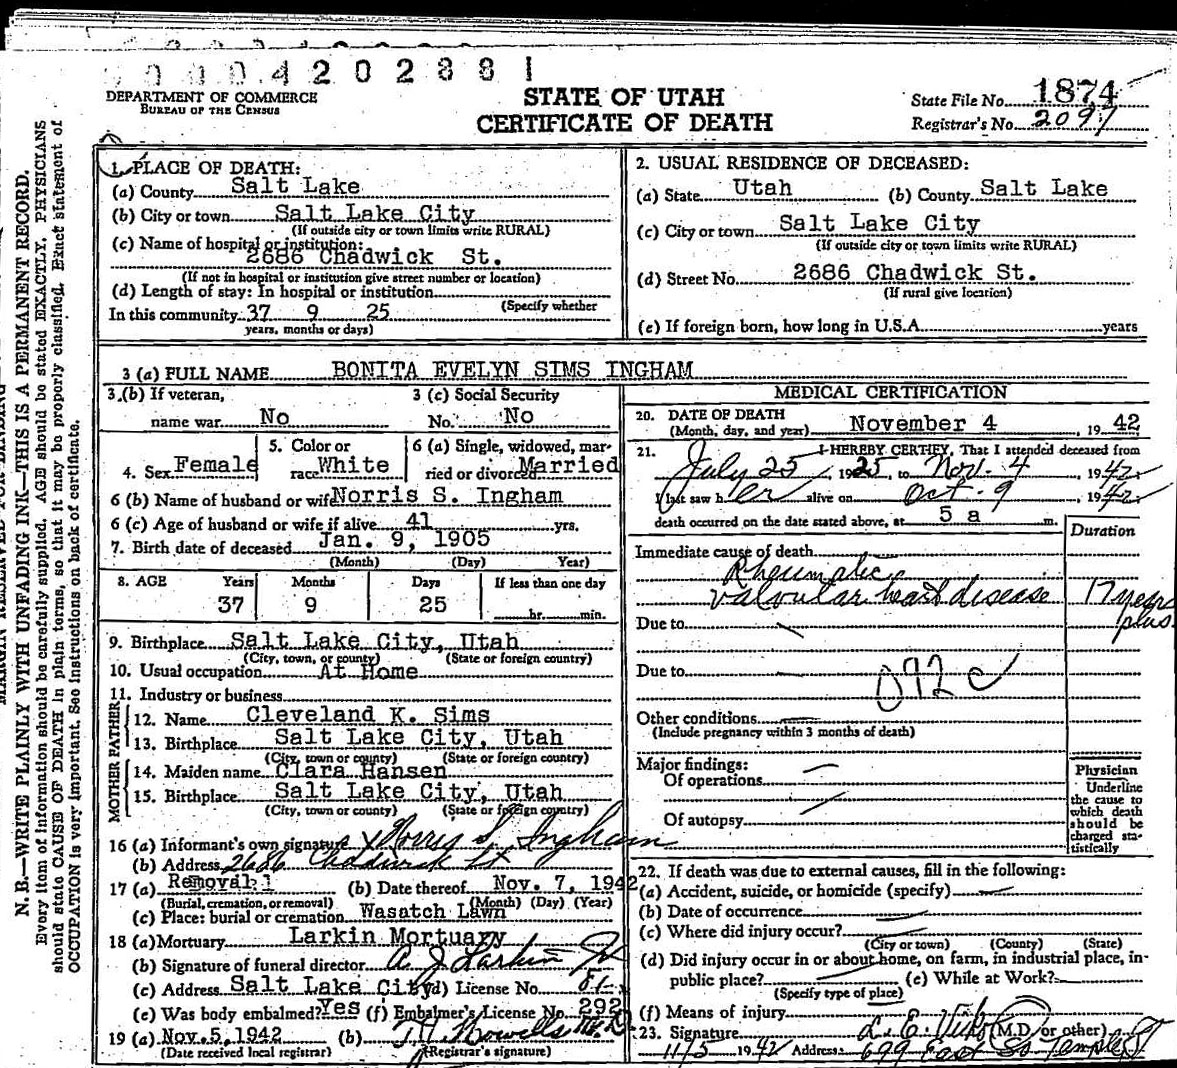 0 0 0 4 2 0 2 8 8 1
DEPARTMENT OF COMMERCE
BUREAU OF THE CENSUS
STATE OF UTAH
CERTIFICATE OF DEATH
State File No. 1874
Registrar's No. 2097
MARGIN RESERVED FOR BINDING
N. B.—WRITE PLAINLY WITH UNFADING INK—THIS IS A PERMANENT RECORD.
Every item of information should be carefully supplied. AGE should be stated EXACTLY. PHYSICIANS
should state CAUSE OF DEATH in plain terms, so that it may be properly classified. Exact statement of
OCCUPATION is very important. See instructions on back of certificate.
1. PLACE OF DEATH:
(a) County Salt Lake
(b) City or town Salt Lake City
(If outside city or town limits write RURAL)
(c) Name of hospital or institution:
2686 Chadwick St.
(If not in hospital or institution give street number or location)
(d) Length of stay: In hospital or institution
(Specify whether
In this community 37 9 25
years, months or days)
2. USUAL RESIDENCE OF DECEASED:
(a) State Utah (b) County Salt Lake
(c) City or town Salt Lake City
(If outside city or town limits write RURAL)
(d) Street No. 2686 Chadwick St.
(If rural give location)
(e) If foreign born, how long in U.S.A. years
3 (a) FULL NAME BONITA EVELYN SIMS INGHAM
3.(b) If veteran, 3 (c) Social Security
name war No No. No
4. Sex Female
5. Color or
race White
6 (a) Single, widowed, mar-
ried or divorced Married
6 (b) Name of husband or wife Norris S. Ingham
6 (c) Age of husband or wife if alive 41 yrs.
7. Birth date of deceased Jan. 9, 1905
(Month) (Day) (Year)
8. AGE Years Months Days If less than one day
37 9 25 hr. min.
9. Birthplace Salt Lake City, Utah
(City, town, or county) (State or foreign country)
10. Usual occupation At Home
11. Industry or business
FATHER
12. Name Cleveland K. Sims
13. Birthplace Salt Lake City, Utah
(City, town or county) (State or foreign country)
MOTHER
14. Maiden name Clara Hansen
15. Birthplace Salt Lake City, Utah
(City, town or county) (State or foreign country)
16 (a) Informant's own signature X Norris S. Ingham
(b) Address 2686 Chadwick St
17 (a) Removal (b) Date thereof Nov. 7, 1942
(Burial, cremation, or removal) (Month) (Day) (Year)
(c) Place: burial or cremation Wasatch Lawn
18 (a) Mortuary Larkin Mortuary
(b) Signature of funeral director A J Larkin
(c) Address Salt Lake City (d) License No. 81
(e) Was body embalmed? Yes (f) Embalmer's License No. 292
19 (a) Nov. 5, 1942 (b)
(Date received local registrar) (Registrar's signature)
MEDICAL CERTIFICATION
20. DATE OF DEATH
(Month, day, and year) November 4, 19 42
21. I HEREBY CERTIFY, That I attended deceased from
July 25, 1925, to Nov. 4 1942
I last saw h er alive on Oct - 9, 1942
death occurred on the date stated above, at 5 a m.
Duration
Immediate cause of death
Rheumatic
valvular heart disease 17 years
plus
Due to
Due to
092 c
Other conditions
(Include pregnancy within 3 months of death)
Major findings:
Of operations
Of autopsy
Physician
Underline
the cause to
which death
should be
charged sta-
tistically
22. If death was due to external causes, fill in the following:
(a) Accident, suicide, or homicide (specify)
(b) Date of occurrence
(c) Where did injury occur?
(City or town) (County) (State)
(d) Did injury occur in or about home, on farm, in industrial place, in
public place? (e) While at Work?
(Specify type of place)
(f) Means of injury
23. Signature L. E. (M.D. or other)
11/5 1942 Address 699 East So Temple St